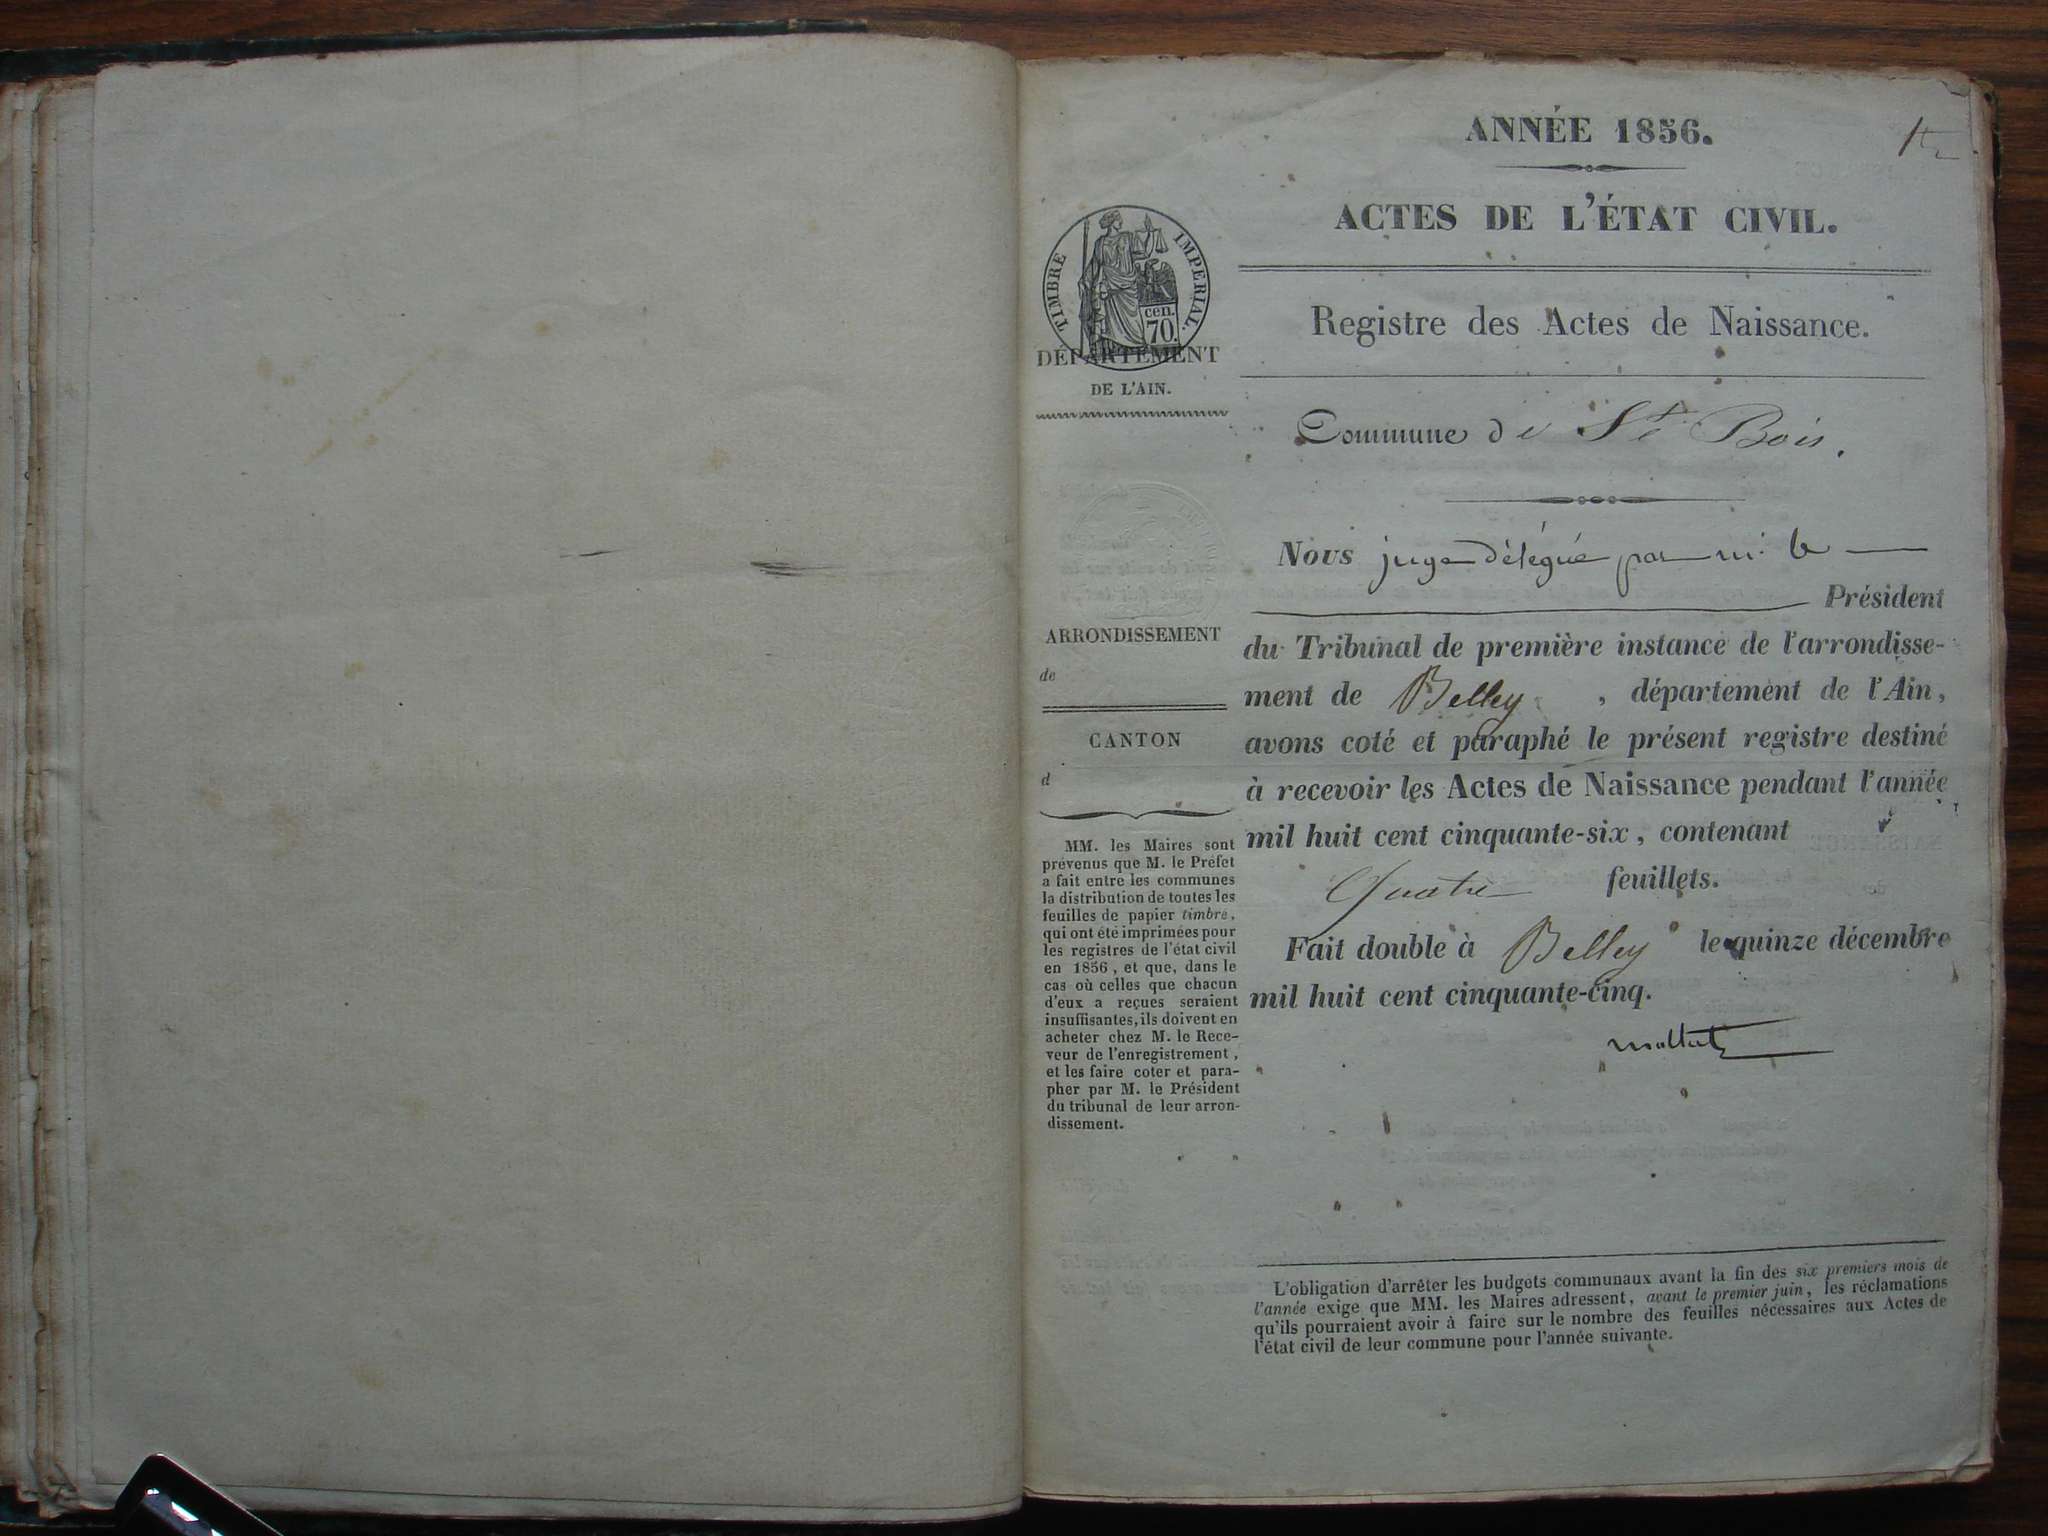 ANNÉE 1856.
ACTES DE L'ÉTAT CIVIL.
TIMBRE IMPERIAL.
cen.
70.
DÉPARTEMENT
DE L'AIN.
Registre des Actes de Naissance.
Commune de St Bois.
Nous juge délégué par m. le
Président
du Tribunal de première instance de l'arrondisse-
ment de Belley, département de l'Ain,
avons coté et paraphé le présent registre destiné
à recevoir les Actes de Naissance pendant l'année
mil huit cent cinquante-six, contenant
Quatre feuillets.
Fait double à Belley le quinze décembre
mil huit cent cinquante-cinq.
ARRONDISSEMENT
de
CANTON
d
MM. les Maires sont
prévenus que M. le Préfet
a fait entre les communes
la distribution de toutes les
feuilles de papier timbré,
qui ont été imprimées pour
les registres de l'état civil
en 1856, et que, dans le
cas où celles que chacun
d'eux a reçues seraient
insuffisantes, ils doivent en
acheter chez M. le Rece-
veur de l'enregistrement,
et les faire coter et para-
pher par M. le Président
du tribunal de leur arron-
dissement.
L'obligation d'arrêter les budgets communaux avant la fin des six premiers mois de
l'année exige que MM. les Maires adressent, avant le premier juin, les réclamations
qu'ils pourraient avoir à faire sur le nombre des feuilles nécessaires aux Actes de
l'état civil de leur commune pour l'année suivante.